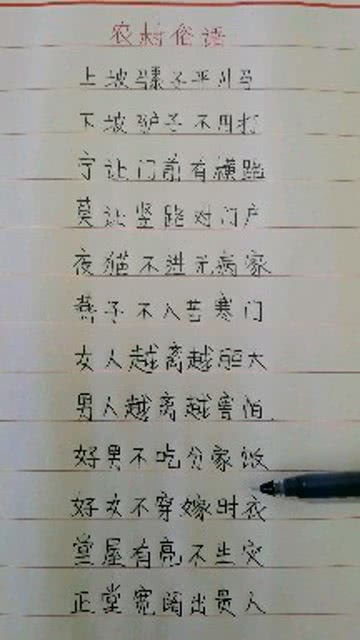 农村俗语
上坡骡子平川马
下坡驴子不用打
宁让门前有横路
莫让竖路对门户
夜猫不进无病家
燕子不入苦寒门
女人越离越胆大
男人越离越害怕
好男不吃分家饭
好女不穿嫁时衣
堂屋有亮不生灾
正堂宽阔出贵人